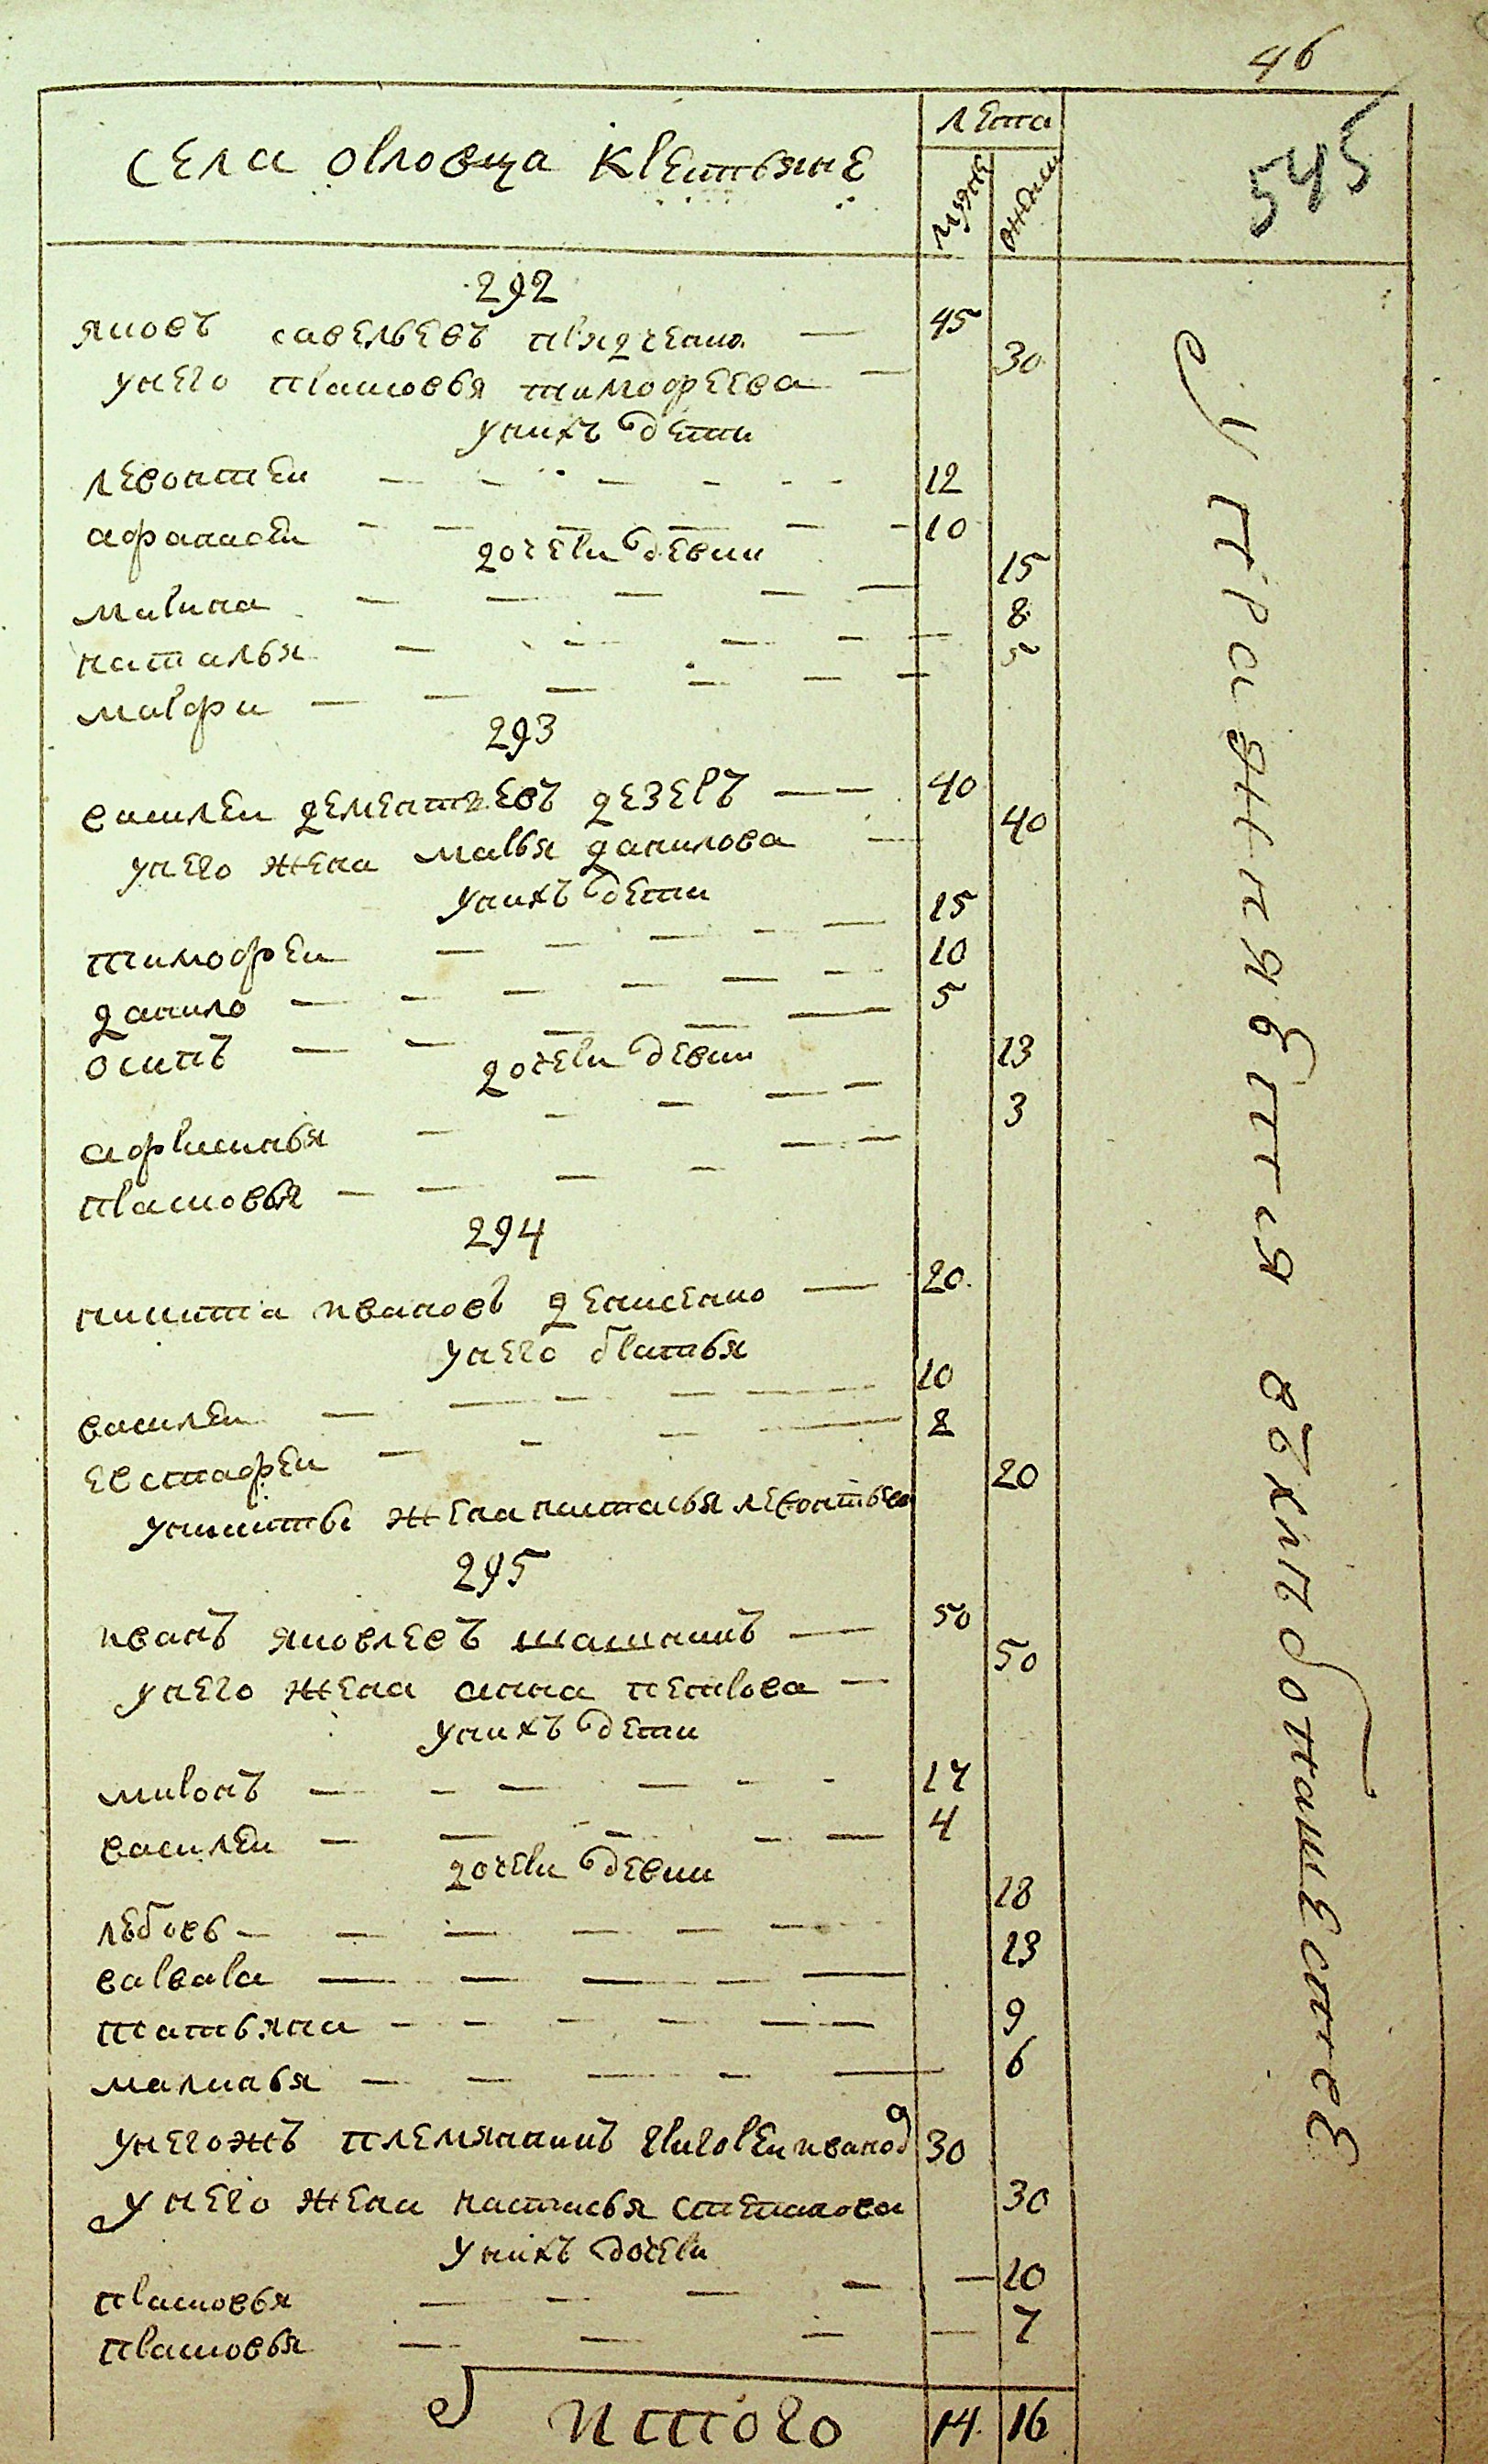 46
545
села орловца крестьяне
лета
мужс
женс
292
яковъ савельевъ прядченко — 45
унего прасковья тимофеева — 30
унихъ дети
левонтеи 12
афанасеи 10
дочери девки
марина 15
наталья 8
мавра 5
293
василеи дементьевъ дезеръ 40
унего жена марья данилова 40
унихъ дети
тимофеи 15
данило 10
осипъ 5
дочери девки
афросинья 13
прасковья 3
294
никита ивановъ денисенко 20
унего братья
василеи 10
евстафеи 8
уникиты жена настасья левонтьева 20
295
иванъ яковлевъ шашкинъ 50
унего жена анна петрова 50
унихъ дети
миронъ 17
василеи 4
дочери девки
любовь 18
варвара 13
татьяна 9
маланья 6
унегожъ племянникъ григореи иванов 30
унего жена настасья степанова 30
унихъ дочери
прасковья 10
прасковья 7
итого 14 16
упражняются вхлебопашестве